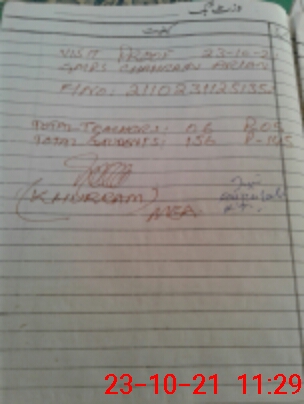 VISIT PROOF 23-10-21
GMPS CHANGAIN ARIAN
F/NO: 2110231125135
TOTAL TEACHERS: 06 P-05
TOTAL STUDENTS: 136 P-105
(KHURRAM)
MEA
23-10-21 11:29